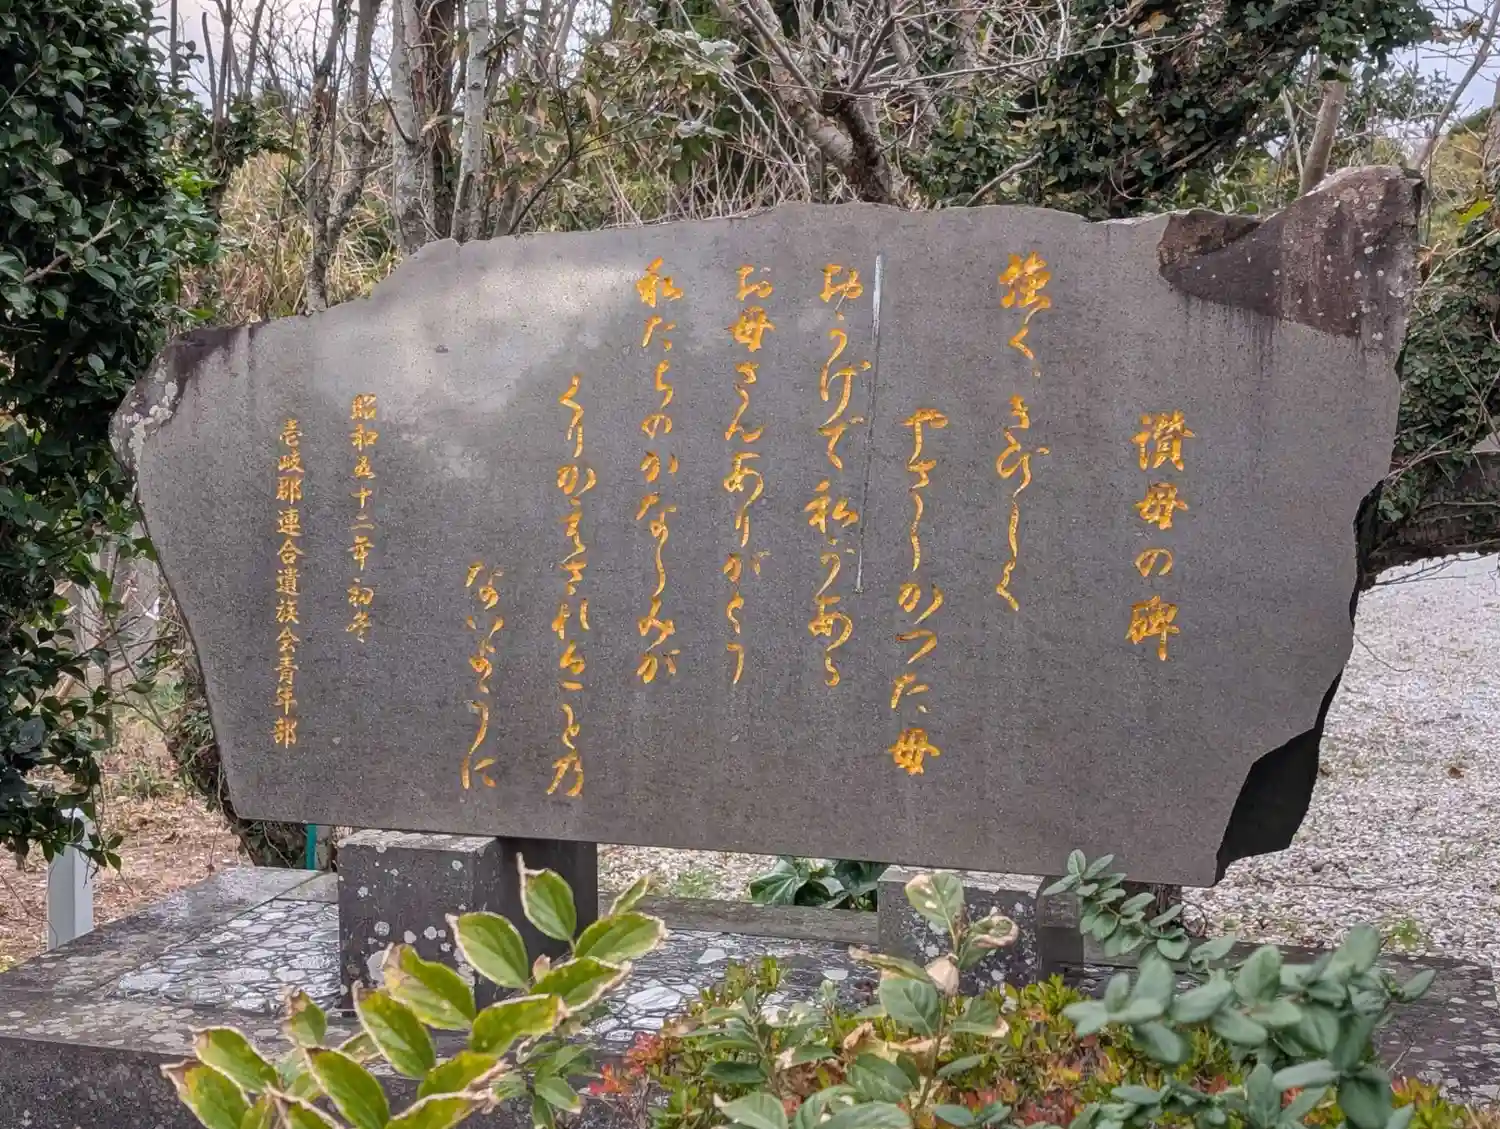 讃母の碑
強く、きびしく
やさしかった母
おかげで私がある
お母さんありがとう
私たちのかなしみが
くりかえされることの
ないように
昭和五十二年初冬
壱岐郡連合遺族会青年部